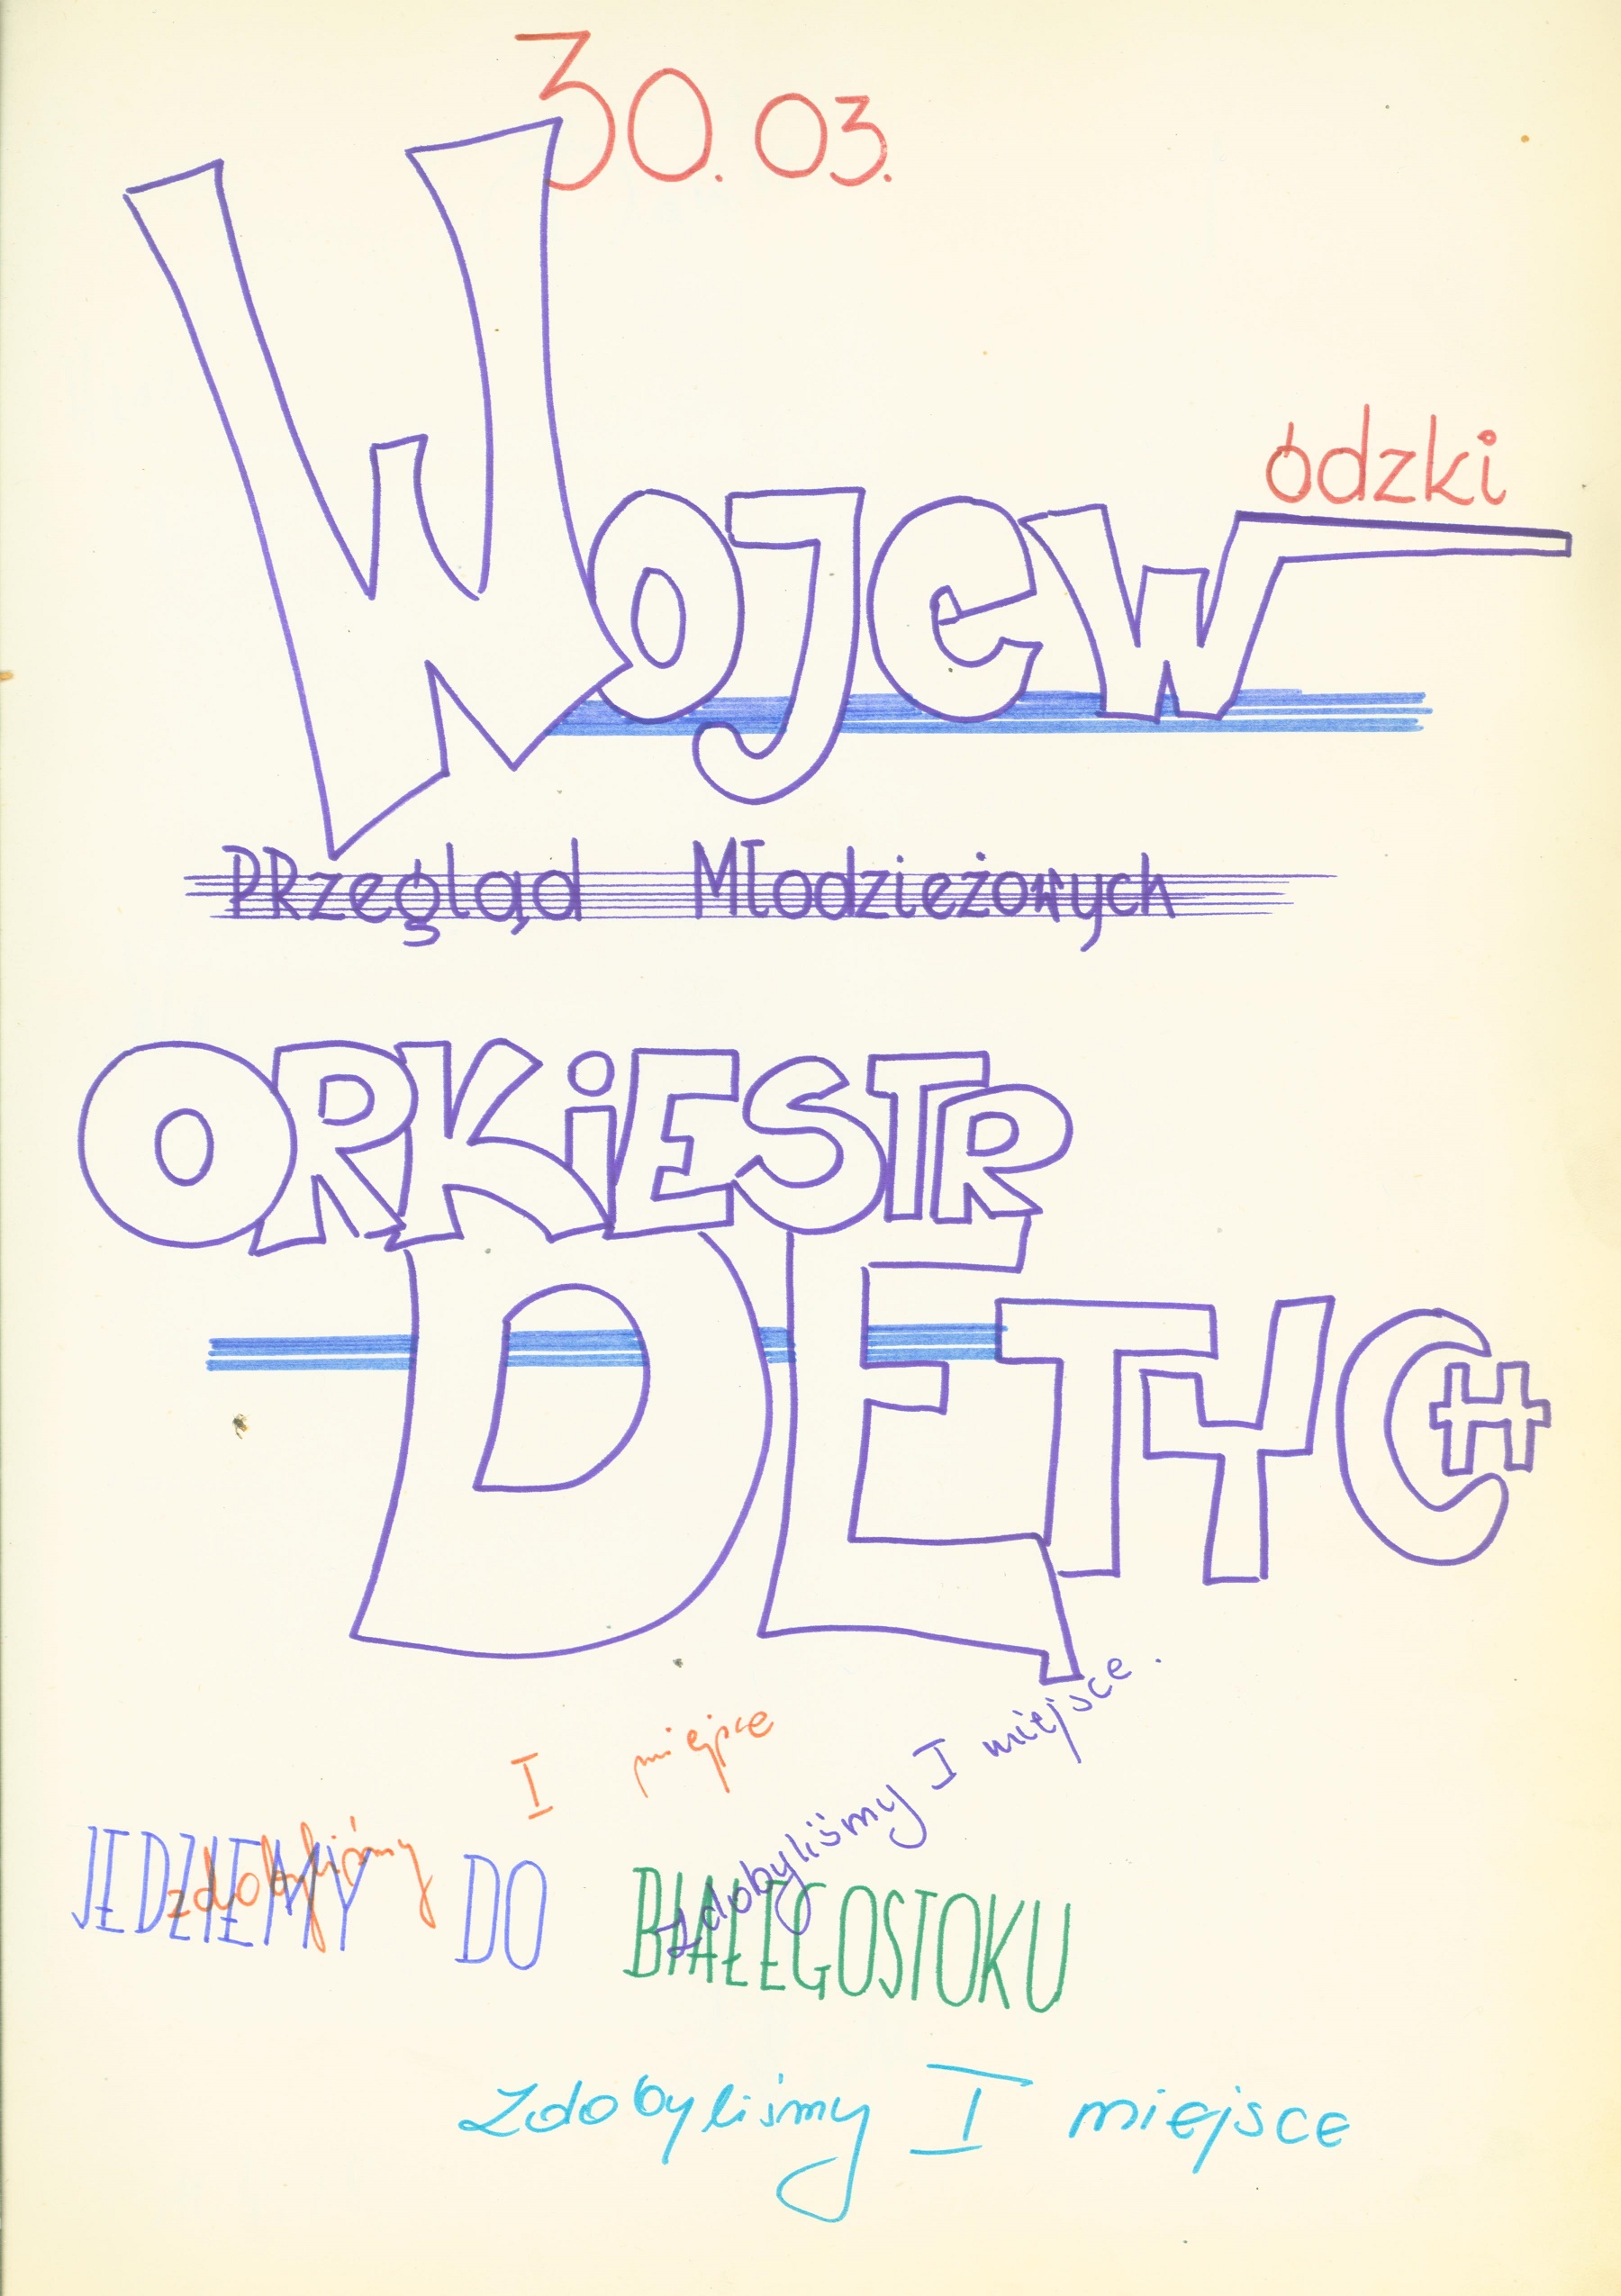 30.03.
Wojewódzki
PRzegląd Młodzieżowych
ORKiESTR
DĘTYCH
I miejsce
zdobyliśmy
zdobyliśmy I miejsce.
JEDZIEMY DO BIAŁEGOSTOKU
Zdobyliśmy I miejsce